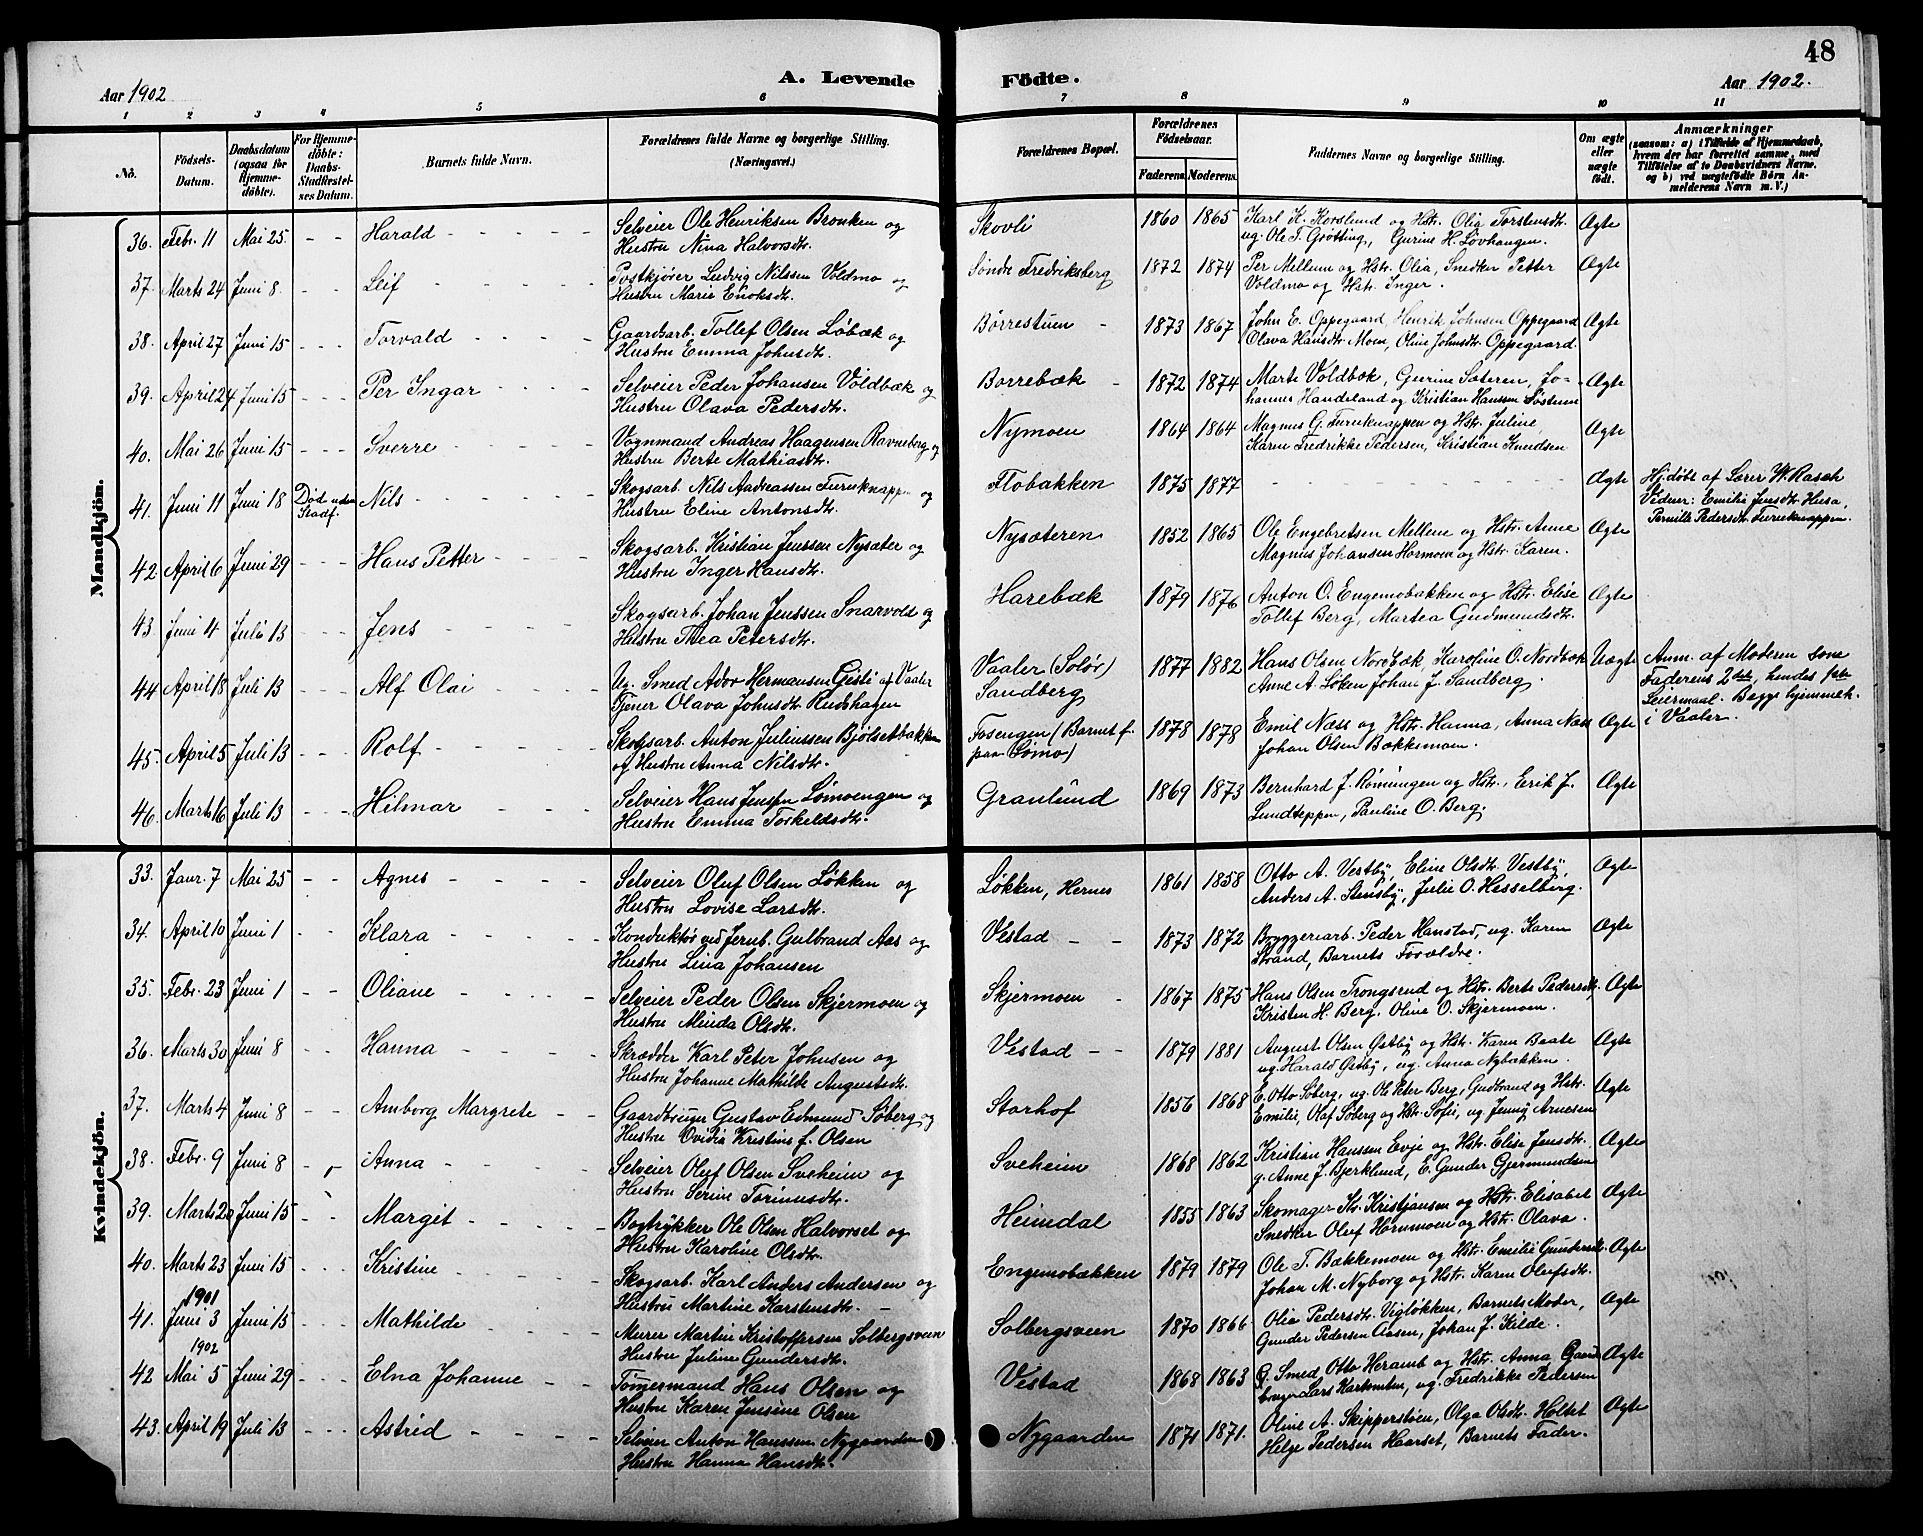 48
A. Levende Fødte.
Aar 1902
Aar 1902.
1 2 3 4 5 6 7 8 9 10 11
No.
Födsels-Datum.
Daabsdatum (ogsaa for Hjemme-döbte).
For Hjemme-döbte: Daabs-Stadfestel-ses Datum.
Barnets fulde Navn.
Forældrenes fulde Navne og borgerlige Stilling. (Næringsvei.)
Forældrenes Bopæl.
Forældrenes Födselsaar.
Faderens. Moderens.
Faddernes Navne og borgerlige Stilling.
Om ægte eller uægte födt.
Anmærkninger
(saasom: a) i Tilfælde af Hjemmedaab, hvem der har forrettet samme, med Tilföielse af to Daabsvidners Navne, og b) ved uægtefödte Börn An-melderens Navn m. V.)
Mandkjön.
36. Febr. 11 Mai 25. - - Harald - - - - Selveier Ole Henriksen Bronken og Skovli 1860 1865 Karl K. Korslund og Hstr. Olia Torstensdt. Ægte
Hustru Nina Halvorsdt. ug. Ole T. Grøtting, Gurine H. Løvhaugen.
37. Marts 24 Juni 8. - - - Leif - - - - Postkjører Ludvig Nilssen Voldmo og Søndre Fredriksberg 1872 1874 Per Mellum og Hstr. Olia, Snedker Petter Ægte
Hustru Marie Enoksdt. Voldmo og Hstr. Inger.
38. April 27 Juni 15 - - - Torvald - - - - Gaardsarb. Tollef Olsen Løbæk og Børrestuen - 1873 1867 John E. Oppegaard, Henrik Johnsen Oppegaard Ægte
Hustru Emma Johnsdt. Olava Hansdt. Moen, Oline Johnsdt. Oppegaard.
39. April 24 Juni 15 - - - Per Ingar - - - Selveier Peder Johansen Voldbæk og Borrebæk - 1872 1874 Marte Voldbæk, Gurine Sæteren, Jo- Ægte
Hustru Olava Pedersdt. hannes Handeland og Kristian Hanssen Løstuen
40. Mai 26 Juni 15 - - - Sverre - - - - Vognmand Andreas Haagensen Ravneberg og Nymoen 1864 1864 Magnus G. Furuknappen og Hstr. Juline, Ægte
Hustru Berte Mathiasdt. Karen Fredrikke Pedersen, Kristian Knudsen
41. Juni 11 Juni 18 Død uden Stadf. Nils - - - - Skogsarb. Nils Andreassen Furuknappen og Flobakken 1875 1877 - - - - Ægte Hj.døbt af Lærer W. Rasch
Hustru Eline Antonsdt. Vidner: Emilie Jensdt. Husa,
Pernille Pedersdt. Furuknappen.
42. April 6 Juni 29 - - - Hans Petter - - - Skogsarb. Kristian Jenssen Nysæter og Nysæteren 1852 1865 Ole Engebretsen Mellem og Hstr. Anne Ægte
Hustru Inger Hansdt. Magnus Johansen Hormoen og Hstr. Karen.
43. Juni 4 Juli 13 - - - Jens - - - - Skogsarb. Johan Jenssen Snarvold og Harebæk 1879 1876 Anton O. Engemobakken og Hstr. Elise Ægte
Hustru Thea Petersdt. Tollef Berg, Martea Gudmundsdt.
44 April 18 Juli 13 - - - Alf Olai - - - - Ug. Smed Ador Hermansen Gisti af Vaaler Vaaler (Solør) 1877 1882 Hans Olsen Nordbæk, Karoline O. Nordbæk Uægte Anm. af Moderen som
Tjener Olava Johnsdt. Rudshagen Sandberg Anne A. Løken Johan J. Sandberg. Faderens 2det, hendes 1ste
Leiermaal. Begge hjemmeh.
i Vaaler.
45. April 5 Juli 13 - - - Rolf - - - - Skogsarb. Anton Juliussen Bjølsetbakken Fosengen (Barnet f. 1878 1878 Emil Næss og Hstr. Hanna, Anna Næss Ægte
og Hustru Anna Nilsdt. paa Lømo) Johan Olsen Bakkemoen.
46. Marts 16 Juli 13 - - - Hilmar - - - Selveier Hans Jensen Lømoengen og Granlund 1869 1873 Bernhard J. Rønningen og Hstr., Erik J. Ægte
Hustru Emma Torkeldsdt. Lundteppen, Pauline O. Berg.
Kvindekjön.
33. Janr. 7 Mai 25 - - Agnes - - - - Selveier Oluf Olsen Løkken og Løkken, Hernes 1861 1858 Otto A. Vestby, Eline Olsdt. Vestby, Ægte
Hustru Lovise Larsdt. Anders A. Stensby, Julie O. Hesselberg.
34. April 10 Juni 1 - - Klara - - - - Konduktør ved Jernb. Gulbrand Aas og Vestad - - 1873 1872 Bryggeriarb. Peder Hanstad, ug. Karen Ægte
Hustru Lina Johansen Strand, Barnets Forældre.
35. Febr. 23 Juni 1 - - Oliane - - - - Selveier Peder Olsen Skjermoen og Skjermoen - 1867 1875 Hans Olsen Trongsrud og Hstr. Berte Pedersdt. Ægte
Hustru Minda Olsdt. Kristen H. Berg. Oline O. Skjermoen.
36. Marts 30 Juni 8 - - Hanna - - - - Skrædder Karl Peter Johnsen og Vestad - - 1879 1881 August Olsen Østby og Hstr. Karen Beate Ægte
Hustru Johanne Mathilde Augustsdt. ug. Harald Østby, ug. Anna Nybakken.
37. Marts 4 Juni 8 - - Amborg Margrete - - Gaardbruger Gustav Edmund Søberg og Storhof 1856 1868 E. Otto Søberg, ug. Ole Peter Berg, Gudbrand og Hstr. Ægte
Hustru Ovidia Kristine f. Olsen Emilie, Olaf Søberg og Hstr. Sofie, ug. Jenny Arnesen
38. Febr. 9 Juni 8 - - Anna - - - - Selveier Oluf Olsen Sveheim og Sveheim 1868 1862 Kristian Hanssen Evje og Hstr. Elise Jensdt. Ægte
Hustru Serine Torinusdt. g. Anne J. Bjerklund, E. Gunder Gjermundsen
39. Marts 20 Juni 15 - - Margit - - - - Bogtrykker Ole Olsen Halvorset og Heimdal 1855 1863 Skomager Kr. Kristjansen og Hstr. Elisabet Ægte
Hustru Karoline Olsdt. Snedker Oluf Hornmoen og Hstr. Olava.
40. Marts 23 Juni 15 - - - Kristine - - - - Skogsarb. Karl Anders Andersen og Engemobakken 1879 1879 Ole T. Bakkemoen og Hstr. Emilie Gundersdt. Ægte
Hustru Martine Karstensdt. - Johan M. Nyborg og Hstr. Karen Olufsdt.
1901
41. Juni 3 Juni 15 - - - Mathilde - - - - Murer Martin Kristoffersen Solbergsveen Solbergsveen 1870 1866 Olia Pedersdt. Vigløkken, Barnets Moder, Ægte
Hustru Juline Gundersdt. Gunder Pedersen Aasen, Johan J. Kilde.
1902
42 Mai 5 Juni 29 - - - Elna Johanne - - Tømermand Hans Olsen og Vestad 1868 1863 Smed Otto Heramb og Hstr. Anna Gaard- Ægte
Hustru Karen Jensine Olsen bruger Lars , ug. Fredrikke Pedersen
43. April 19 Juli 13 - - - Astrid - - - Selveier Anton Hanssen Nygaarden Nygaarden 1871 1871. Oline A. Skipperstøen, Olga Olsdt. Holtet Ægte
Hustru Hanna Hansdt. Helge Pedersen Haarset, Barnets Fader.